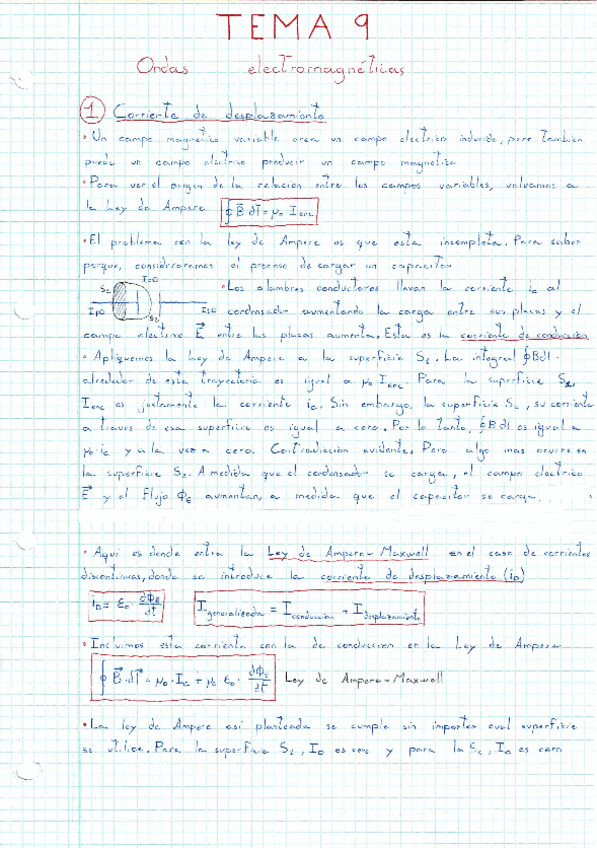 TEMA 9
Ondas electromagnéticas
1 Corriente de desplazamiento
• Un campo magnético variable crea un campo electrico inducido, pero tambien
puede un campo electrico producir un campo magnetico
• Para ver el origen de la relación entre los campos variables, volvamos a
la Ley de Ampere ∮B⃗·dl⃗ = μ₀ Ienc
• El problema con la ley de Ampere es que esta incompleta. Para saber
porque, consideraremos el proceso de cargar un capacitor
I=0
• Los alambres conductores llevan la corriente ic al
condensador aumentando la carga entre sus placas y el
campo electrico E⃗ entre las placas aumenta. Esta es la corriente de conducción
• Apliquemos la Ley de Ampere a la superficie S₁. La integral ∮Bdl
alrededor de esta trayectoria es igual a μ₀ Ienc. Para la superficie
Ienc es justamente la corriente ic. Sin embargo, la superficie S₂, su corriente
a traves de esa superficie es igual a cero. Por lo tanto, ∮B dl es igual a
μ₀·ic y a la vez a cero. Contradiccion evidente. Pero algo mas ocurre en
la superficie S₂. A medida que el condensador se carga, el campo electrico
E⃗ y el flujo ΦE aumentan, a medida que el capacitor se carga...
• Aqui es donde entra la Ley de Ampere-Maxwell en el caso de corrientes
discontinuas, donde se introduce la corriente de desplazamiento (iD)
iD = ε₀· dΦE/dt Igeneralizada = Iconduccion + Idesplazamiento
• Incluimos esta corriente con la de conduccion en la Ley de Ampere
∮ B⃗·dl⃗ = μ₀·Ic + μ₀ ε₀· dΦE/dt Ley de Ampere-Maxwell
• La ley de Ampere asi planteada se cumple sin importar cual superficie
se utilice. Para la superficie S₁, ID es cero y para la S₂, Ic es cero